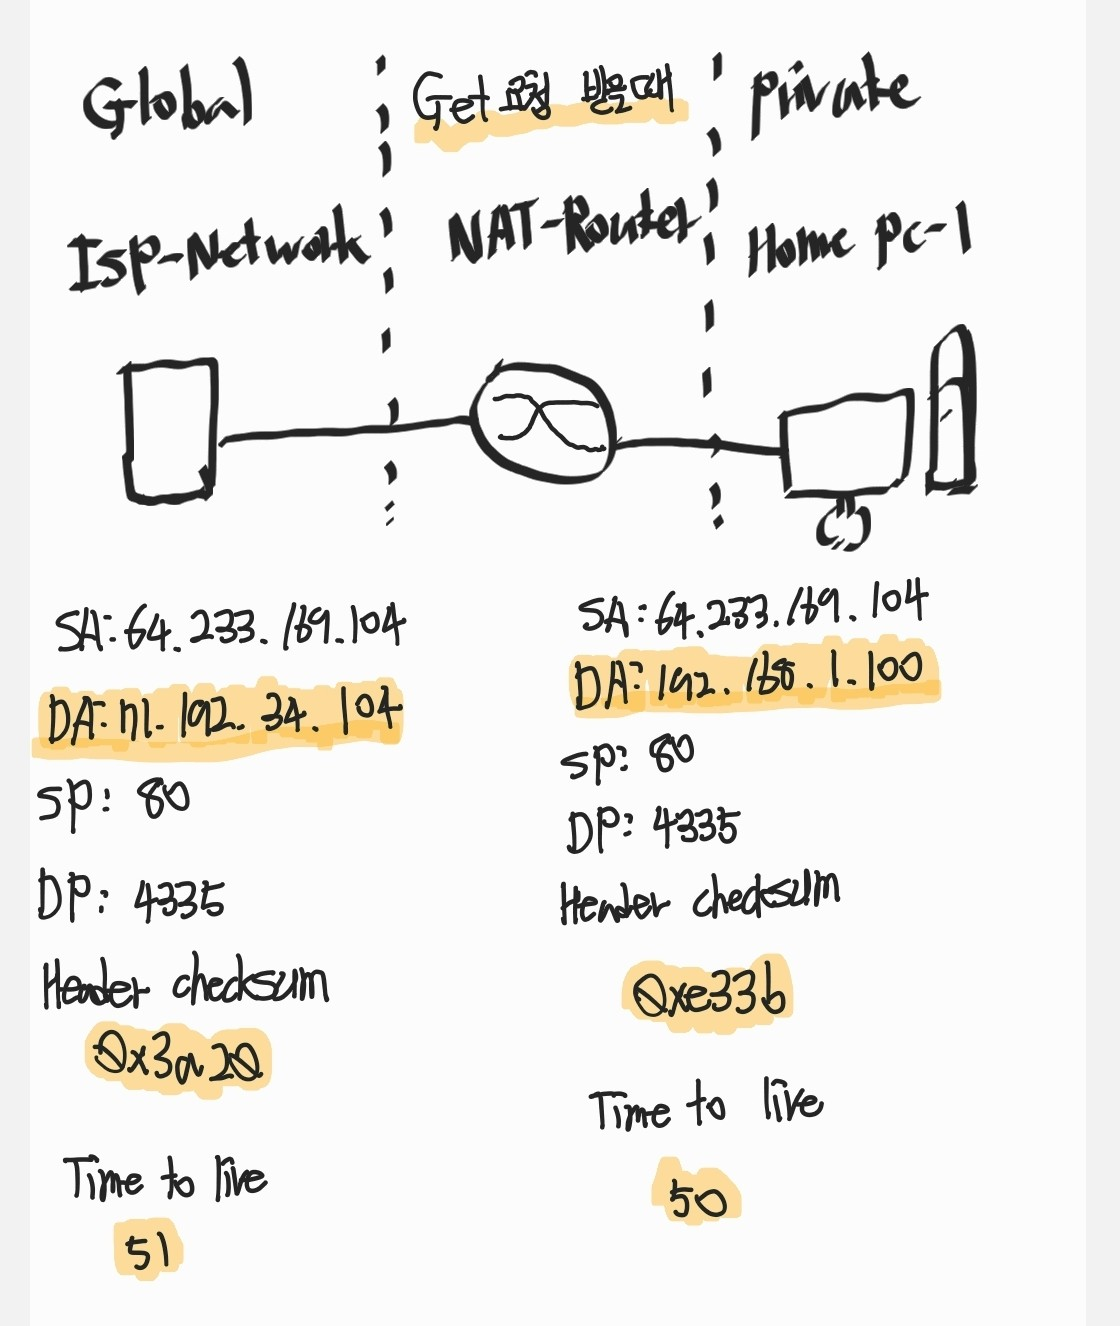 Global
Get 요청 받을때
private
Isp-Network
NAT-Router
Home pc-1
SA: 64.233.169.104
DA: 71.192.34.104
SP: 80
DP: 4335
Header checksum
0x3a20
Time to live
51
SA: 64.233.169.104
DA: 192.168.1.100
SP: 80
DP: 4335
Header checksum
0xe33b
Time to live
50